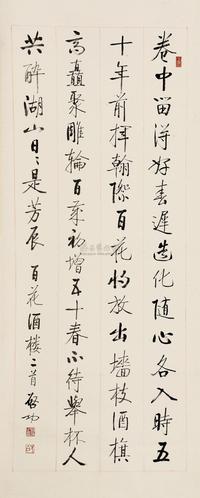 卷中留得好春遲造化随心各入時五
十年前揮翰際百花将放出墙枝酒旗
高矗聚雕輪百初增五十春不待舉杯人
共醉湖山日〻是芳辰 百花酒楼二首 啓功